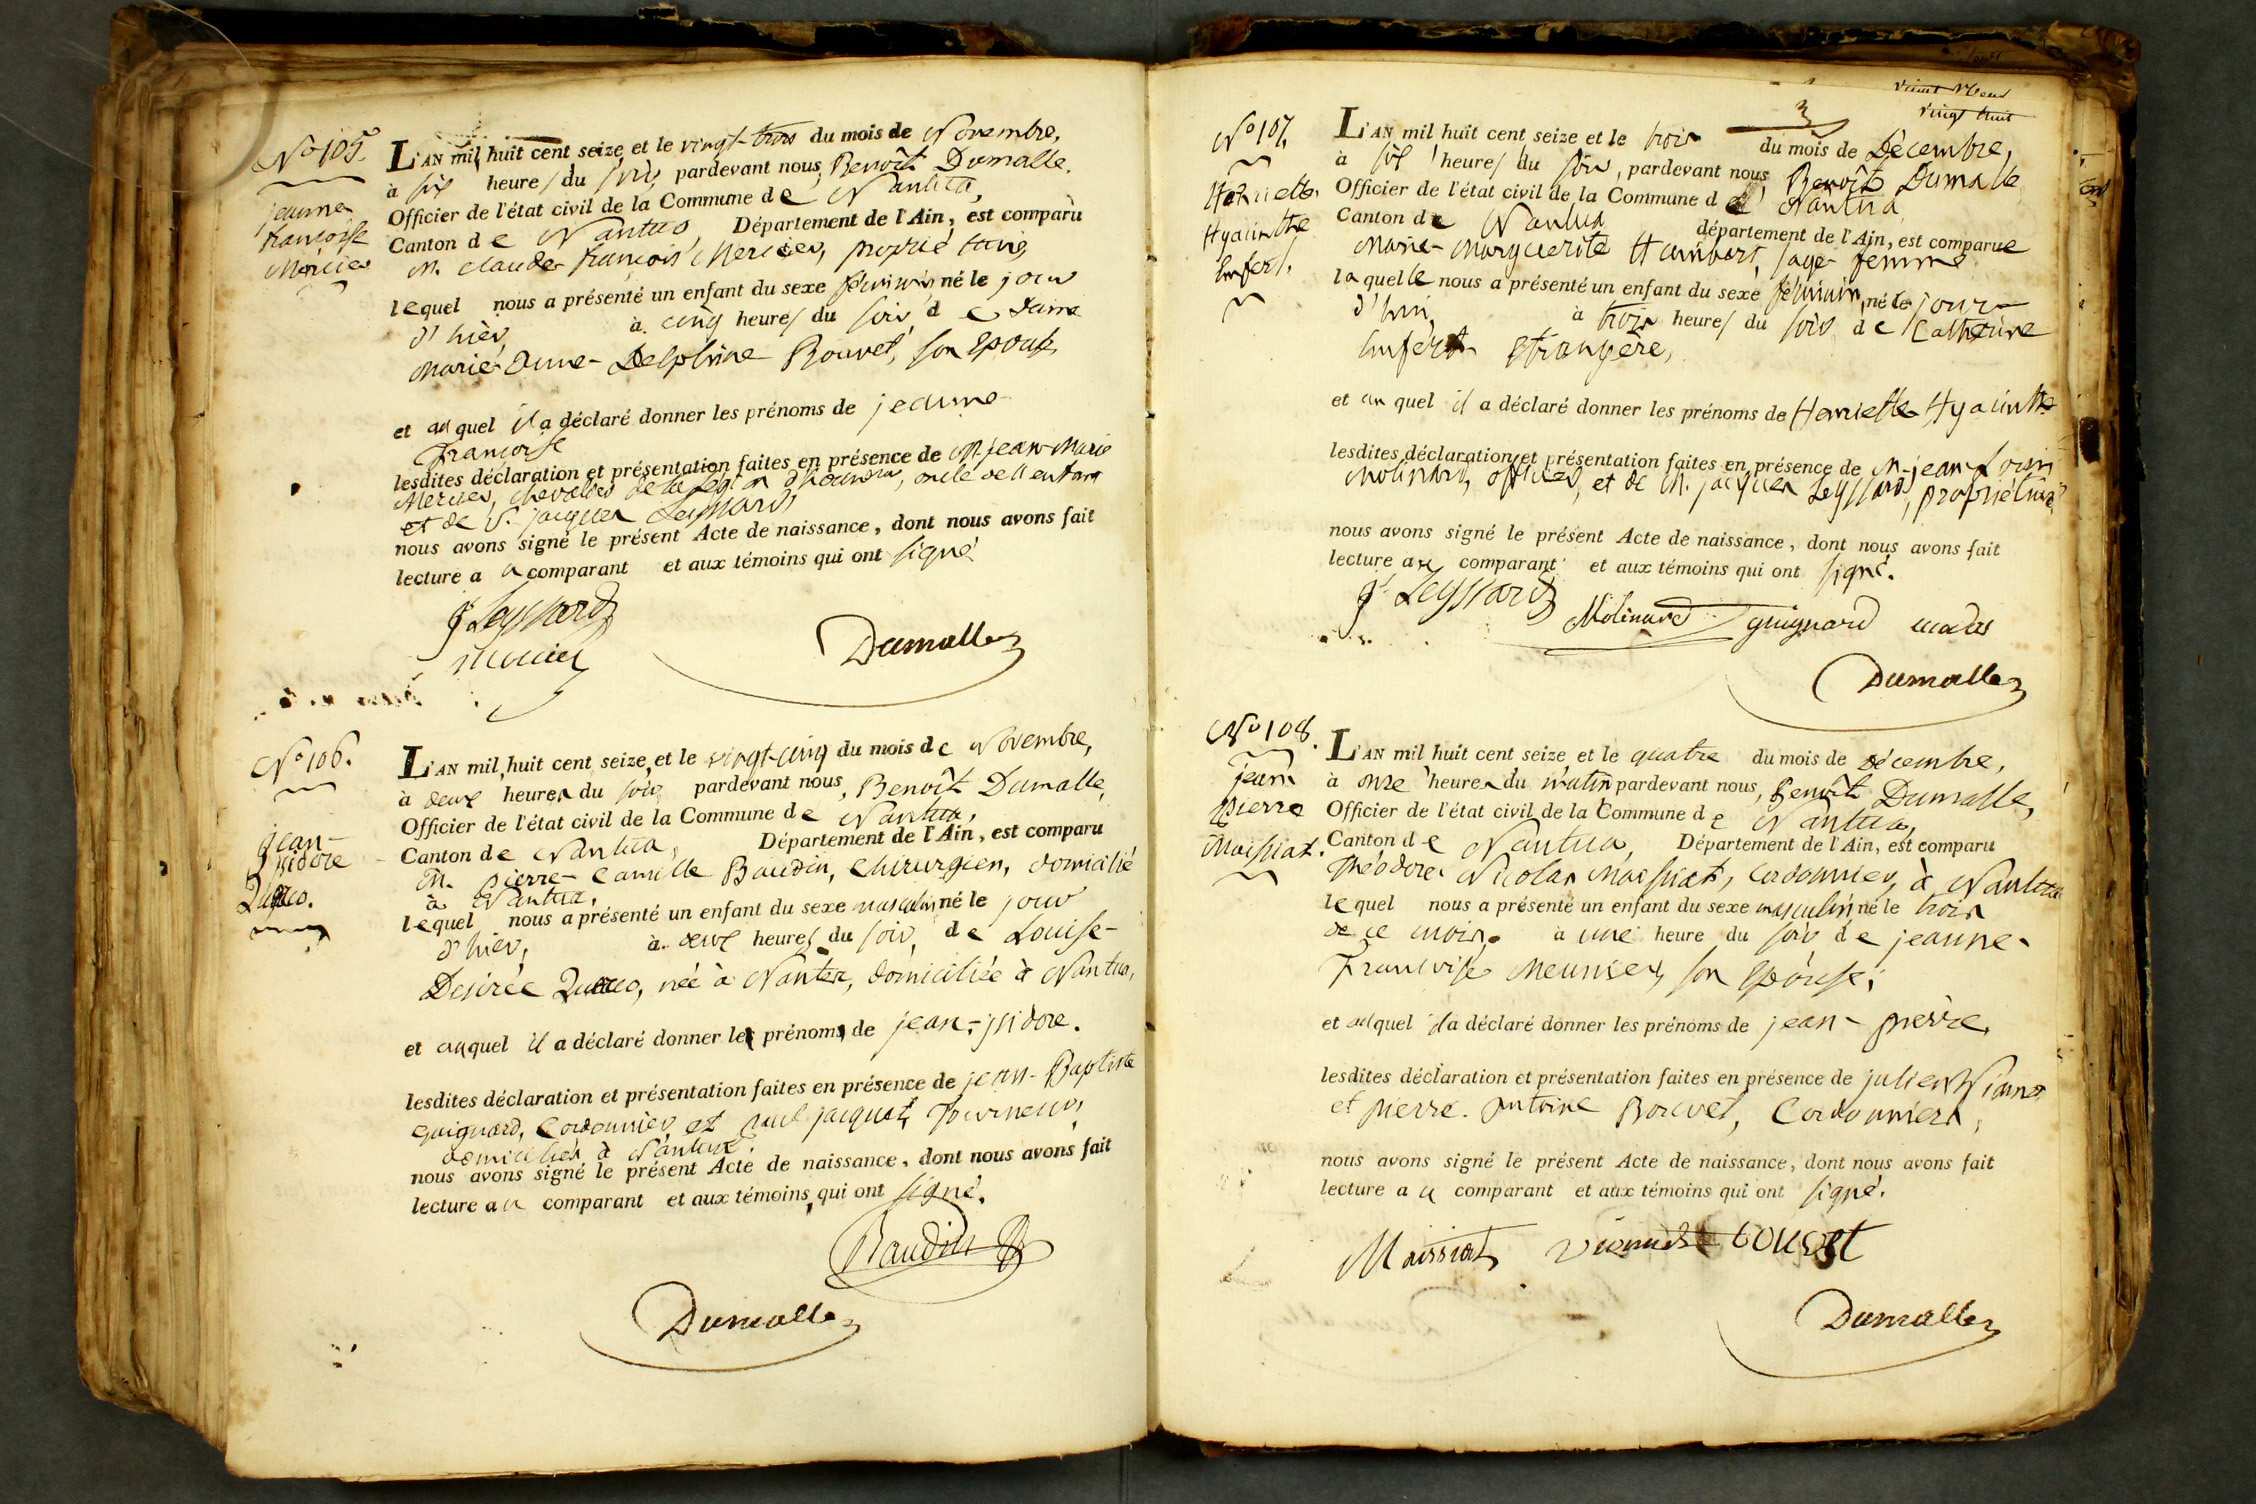 N° 105.
jeanne
françoise
Mercier
L'AN mil huit cent seize et le vingt-trois du mois de Novembre,
à six heures du soir, pardevant nous, Benoît Dumalle,
Officier de l'état civil de la Commune de Nantua,
Canton de Nantua, Département de l'Ain, est comparu
M. Claude françois Mercier, propriétaire,
lequel nous a présenté un enfant du sexe féminin né le jour
d'hier, à cinq heures du soir, de Dame
Marie-Anne-Delphine Bouvet, son Epouse,
et auquel il a déclaré donner les prénoms de jeanne
Françoise
lesdites déclaration et présentation faites en présence de M. jean-Marie
Mercier, chevalier de la Légion d'honneur, oncle de l'enfant
et de S. jacques Leyssard,
nous avons signé le présent Acte de naissance, dont nous avons fait
lecture au comparant et aux témoins qui ont signé
Js Leyssard
Mercier
Dumalle
N° 106.
jean-
jsidore
L'AN mil huit cent seize et le vingt-cinq du mois de Novembre,
à deux heures du soir, pardevant nous, Benoît Dumalle,
Officier de l'état civil de la Commune de Nantua,
Canton de Nantua, Département de l'Ain, est comparu
M. Pierre-Camille Baudin, Chirurgien, domicilié
à Nantua,
lequel nous a présenté un enfant du sexe masculin né le jour
d'hier, à deux heures du soir, de Louise-
Desirée née à domiciliée à Nantua,
et auquel il a déclaré donner les prénoms de jean-jsidore.
lesdites déclaration et présentation faites en présence de jean-Baptiste
Guignard, Cordonnier et jacquet, Tourneur,
domiciliés à Nantua.
nous avons signé le présent Acte de naissance, dont nous avons fait
lecture au comparant et aux témoins qui ont signé.
Baudin
Dumalle
vingt huit
3
N° 107.
Henriette
Hyacinthe
Enfert.
L'AN mil huit cent seize et le trois du mois de Décembre,
à six heures du soir, pardevant nous Benoît Dumalle
Officier de l'état civil de la Commune de Nantua
Canton de Nantua département de l'Ain, est comparue
Marie-Marguerite Humbert, sage-femme
laquelle nous a présenté un enfant du sexe féminin, né le jour
d'hui, à trois heures du soir de Catherine
Enfert Etrangère,
et auquel il a déclaré donner les prénoms de Henriette Hyacinthe
lesdites déclaration et présentation faites en présence de M. jean-Louis
Molinard, officier, et de M. jacques Leyssard, propriétaire,
nous avons signé le présent Acte de naissance, dont nous avons fait
lecture au comparant et aux témoins qui ont signé.
Js Leyssard Molinard guignard
Dumalle
N° 108.
jean
Pierre
Maissiat.
L'AN mil huit cent seize et le quatre du mois de décembre,
à onze heures du matin pardevant nous, Benoît Dumalle,
Officier de l'état civil de la Commune de Nantua,
Canton de Nantua, Département de l'Ain, est comparu
Théodore Nicolas Maissiat, Cordonnier, à Nantua
lequel nous a présenté un enfant du sexe masculin né le trois
de ce mois, à une heure du soir de jeanne-
Françoise Meunier, son Epouse,
et auquel il a déclaré donner les prénoms de jean-pierre,
lesdites déclaration et présentation faites en présence de julien
et pierre-antoine Bouvet, Cordonniers,
nous avons signé le présent Acte de naissance, dont nous avons fait
lecture au comparant et aux témoins qui ont signé.
Maissiat bouvet
Dumalle